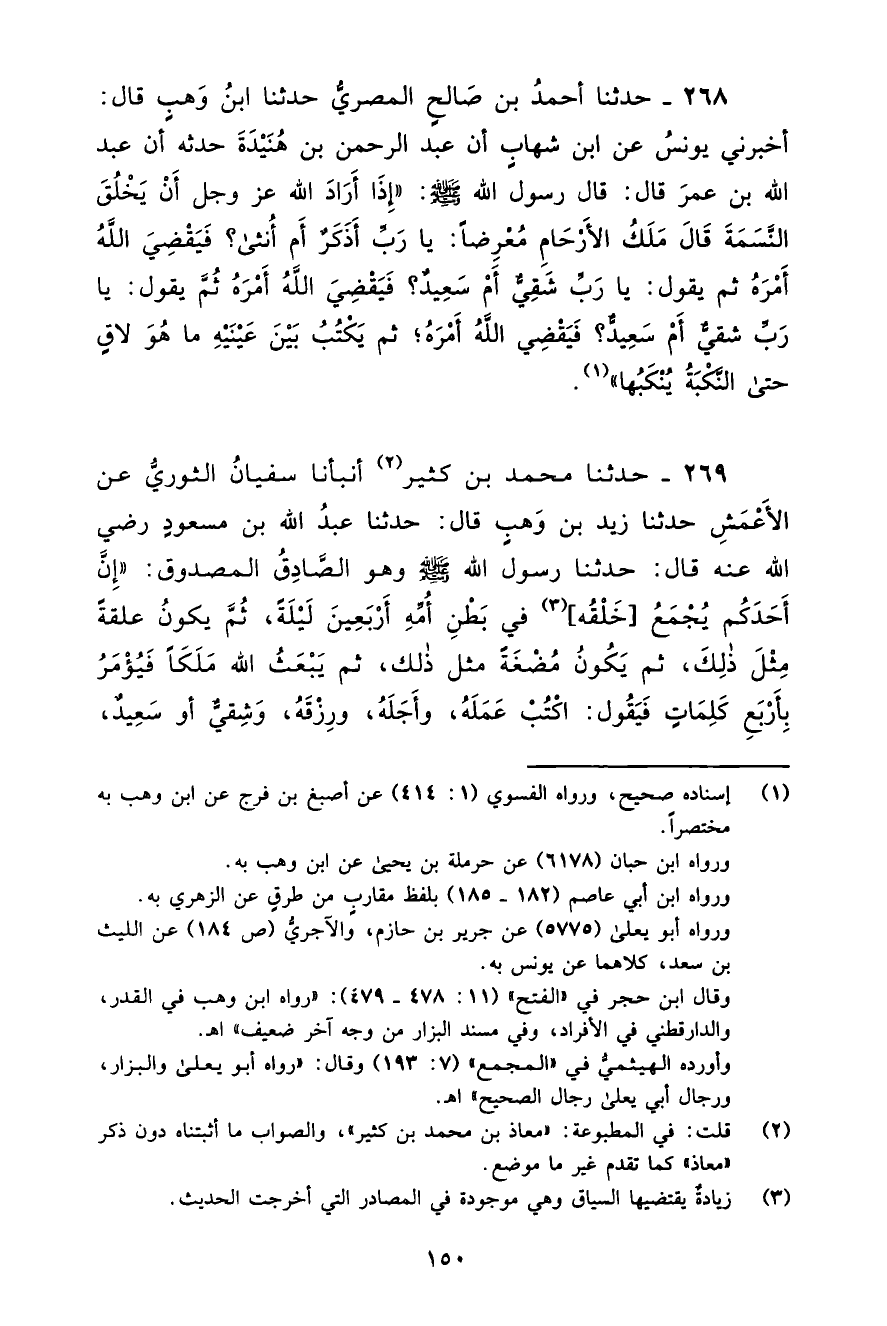 ٢٦٨ ـ حدثنا أحمدُ بن صَالحٍ المصريُّ حدثنا ابنُ وَهبٍ قال:
أخبرني يونسُ عن ابن شهابٍ أن عبد الرحمن بن هُنَيْدَةَ حدثه أن عبد
الله بن عمرَ قال: قال رسول الله ﷺ: «إِذَا أَرَادَ الله عز وجل أَنْ يَخْلُقَ
النَّسَمَةَ قَالَ مَلَكُ الأَرْحَامِ مُعْرِضاً: يا رَبِّ أَذَكَرٌ أم أُنثىٰ؟ فَيَقْضِيَ اللَّهُ
أَمْرَهُ ثم يقول: يا رَبِّ شَقِيٌّ أَمْ سَعِيدٌ؟ فَيَقْضِيَ اللَّهُ أَمْرَهُ ثُمَّ يقول: يا
رَبِّ شقيٌّ أَمْ سَعِيدٌ؟ فَيَقْضِي اللَّهُ أَمْرَهُ؛ ثم يَكْتُبُ بَيْنَ عَيْنَيْهِ ما هُوَ لاقٍ
حتىٰ النَّكْبَةُ يُنْكَبُها»(١).
٢٦٩ ـ حدثنا محمد بن كثير(٢) أنبأنا سفيانُ الثوريُّ عن
الأَعْمَشِ حدثنا زيد بن وَهبٍ قال: حدثنا عبدُ الله بن مسعودٍ رضي
الله عنه قال: حدثنا رسول الله ﷺ وهو الصَّادِقُ المصدوق: «إِنَّ
أَحَدَكُم يُجْمَعُ [خَلْقُه](٣) في بَطْنِ أُمِّهِ أَرْبَعِينَ لَيْلَةً، ثُمَّ يكونُ علقةً
مِثْلَ ذٰلِكَ، ثم يَكُونُ مُضْغَةً مثل ذٰلك، ثم يَبْعَثُ الله مَلَكَاً فَيُؤْمَرُ
بِأَرْبَعِ كَلِمَاتٍ فَيَقُول: اكْتُبْ عَمَلَهُ، وأَجَلَهُ، ورِزْقَهُ، وَشِقيٌّ أو سَعِيدٌ،
(١) إسناده صحيح، ورواه الفسوي (١: ٤١٤) عن أصبغ بن فرج عن ابن وهب به
مختصراً.
ورواه ابن حبان (٦١٧٨) عن حرملة بن يحيىٰ عن ابن وهب به.
ورواه ابن أبي عاصم (١٨٢ ـ ١٨٥) بلفظ مقاربٍ من طرقٍ عن الزهري به.
ورواه أبو يعلىٰ (٥٧٧٥) عن جرير بن حازم، والآجريُّ (ص ١٨٤) عن الليث
بن سعد، كلاهما عن يونس به.
وقال ابن حجر في «الفتح» (١١: ٤٧٨ ـ ٤٧٩): «رواه ابن وهب في القدر،
والدارقطني في الأفراد، وفي مسند البزار من وجه آخر ضعيف» اهـ.
وأورده الهيثميُّ في «المجمع» (٧: ١٩٣) وقال: «رواه أبو يعلىٰ والبزار،
ورجال أبي يعلىٰ رجال الصحيح» اهـ.
(٢) قلت: في المطبوعة: «معاذ بن محمد بن كثير»، والصواب ما أثبتناه دون ذكر
«معاذ» كما تقدم غير ما موضع.
(٣) زيادةٌ يقتضيها السياق وهي موجودة في المصادر التي أخرجت الحديث.
١٥٠